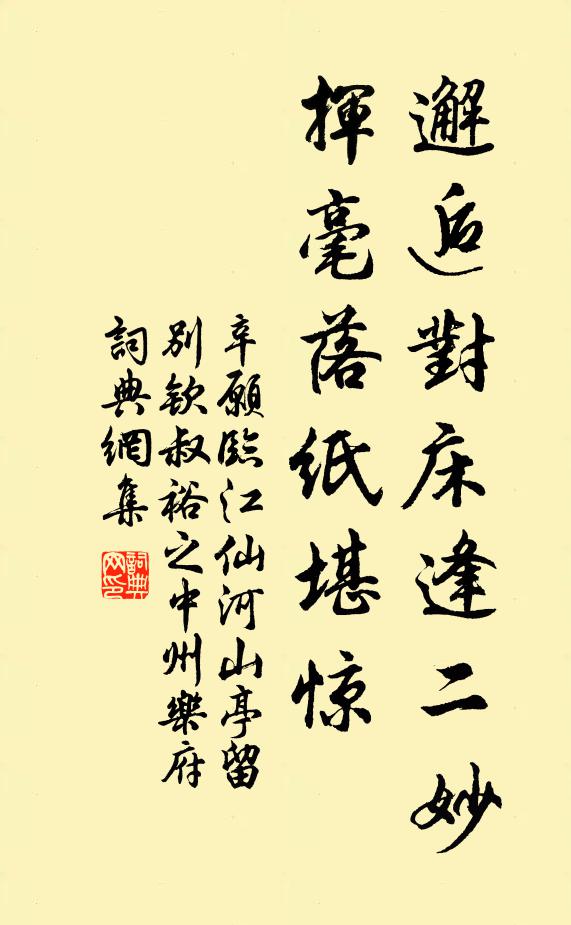 邂逅對床逢二妙
揮毫落紙堪惊
辛願臨江仙河山亭留
别欽叔裕之中州樂府
詞典網集
詞典
网印